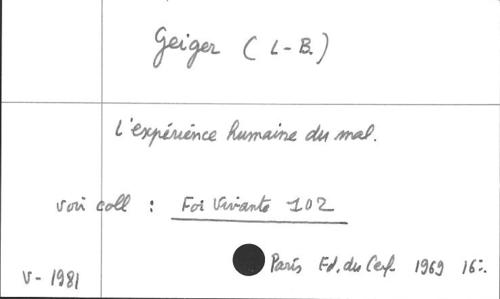 Geiger ( L-B.)
L'expérience humaine du mal.
voir coll : Foi Vivante 102
Paris Ed. du Cerf 1969 16:.
V- 1981